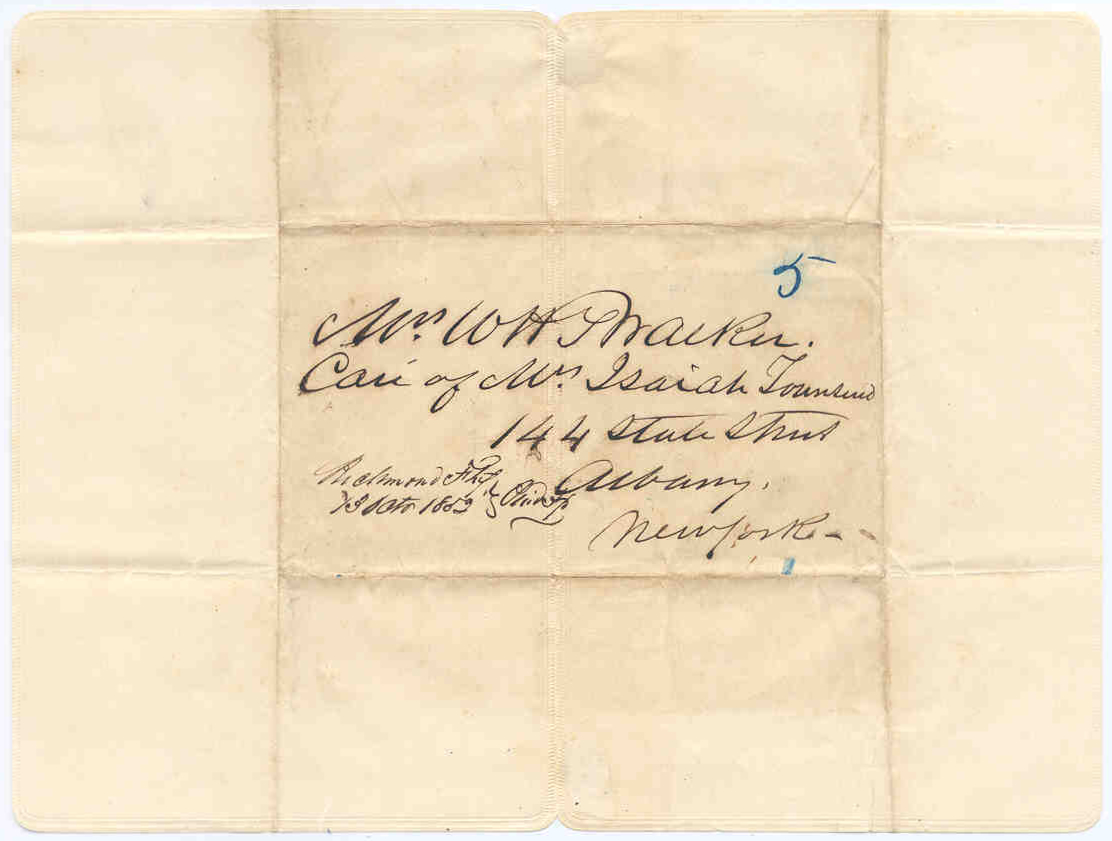 5
Mrs. W H T Walker.
Care of Mrs. Isaiah Townsend
144 State Street
Albany.
New York -
Richmond
13 Octr 1852